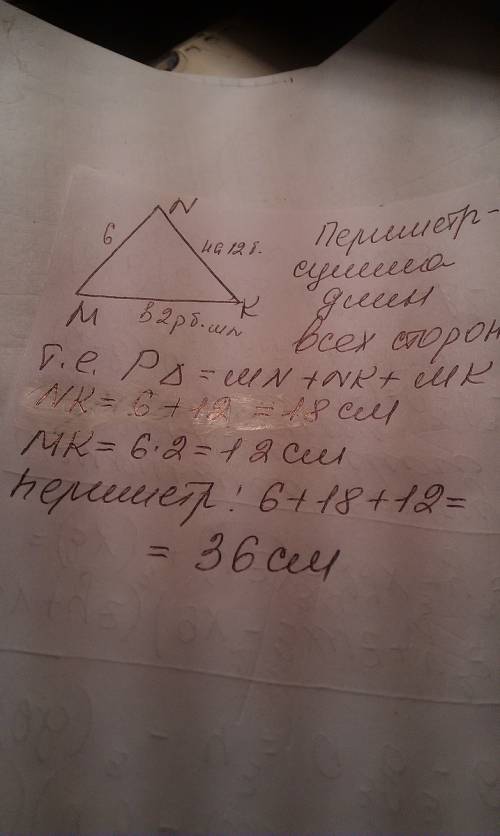 N
6
на 12 б.
M
в 2р б. MN
K
Периметр-
сумма
длин
всех сторон
т.е. P∆ = MN + NK + MK
NK = 6 + 12 = 18 см
MK = 6·2 = 12 см
Периметр: 6 + 18 + 12 =
= 36 см